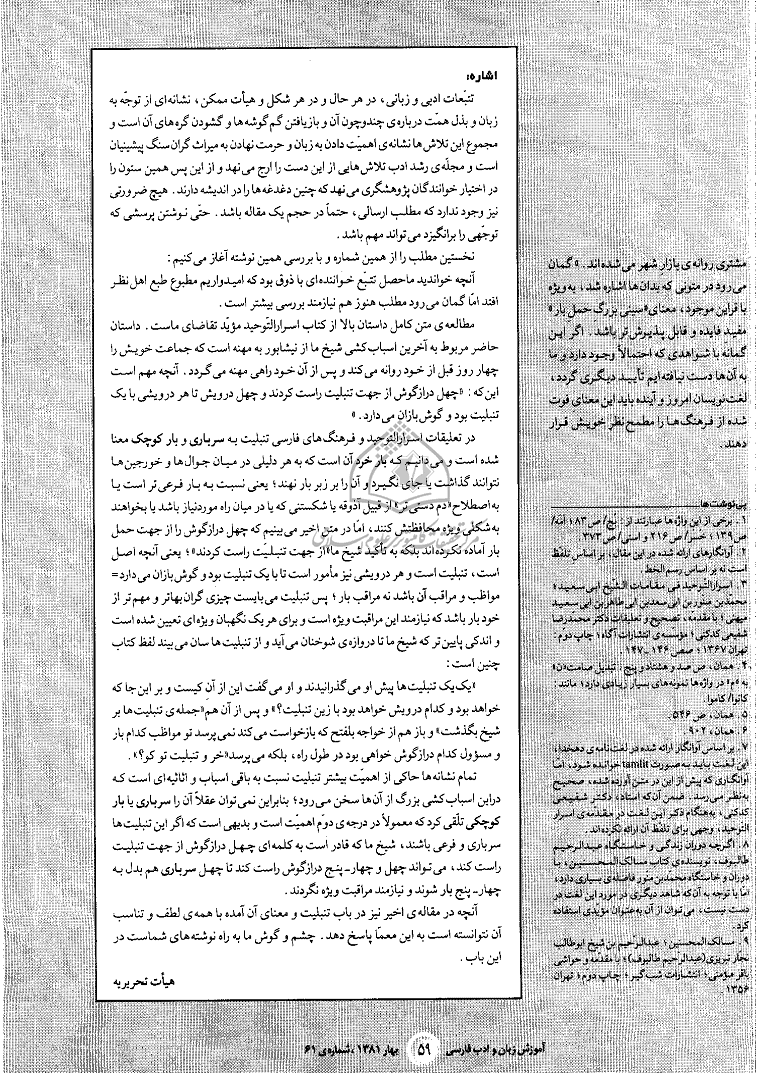 اشاره:
تتبّعات ادبی و زبانی، در هر حال و در هر شکل و هیأت ممکن، نشانه‌ای از توجّه به
زبان و بذل همّت درباره‌ی چندوچون آن و بازیافتن گم‌گوشه‌ها و گشودن گره‌های آن است و
مجموع این تلاش‌ها نشانه‌ی اهمیّت دادن به زبان و حرمت نهادن به میراث گران‌سنگ پیشینیان
است و مجلّه‌ی رشد ادب تلاش‌هایی از این دست را ارج می‌نهد و از این پس همین ستون را
در اختیار خوانندگان پژوهشگری می‌نهد که چنین دغدغه‌ها را در اندیشه دارند. هیچ ضرورتی
نیز وجود ندارد که مطلب ارسالی، حتماً در حجم یک مقاله باشد. حتّی نوشتن پرسشی که
توجّهی را برانگیزد می‌تواند مهم باشد.
نخستین مطلب را از همین شماره و با بررسی همین نوشته آغاز می‌کنیم:
آنچه خواندید ماحصل تتبّع خواننده‌ای با ذوق بود که امیدواریم مطبوع طبع اهل نظر
افتد امّا گمان می‌رود مطلب هنوز هم نیازمند بررسی بیشتر است.
مطالعه‌ی متن کامل داستان بالا از کتاب اسرارالتّوحید مؤیّد تقاضای ماست. داستان
حاضر مربوط به آخرین اسباب‌کشی شیخ ما از نیشابور به مهنه است که جماعت خویش را
چهار روز قبل از خود روانه می‌کند و پس از آن خود راهی مهنه می‌گردد. آنچه مهم است
این‌که: «چهل درازگوش از جهت تنبلیت راست کردند و چهل درویش تا هر درویشی با یک
تنبلیت بود و گوش بازان می‌دارد.»
در تعلیقات اسرارالتوحید و فرهنگ‌های فارسی تنبلیت به سرباری و بار کوچک معنا
شده است و می‌دانیم که بار خرد آن است که به هر دلیلی در میان جوال‌ها و خورجین‌ها
نتوانند گذاشت یا جای نگیرد و آن را بر زبر بار نهند؛ یعنی نسبت به بار فرعی‌تر است یا
به اصطلاح «دم دستی‌تر» از قبیل آذوقه یا شکستنی که یا در میان راه موردنیاز باشد یا بخواهند
به‌شکلی ویژه محافظتش کنند، امّا در متن اخیر می‌بینیم که چهل درازگوش را از جهت حمل
بار آماده نکرده‌اند بلکه به تأکید شیخ ما «از جهت تنبلیت راست کردند»؛ یعنی آنچه اصل
است، تنبلیت است و هر درویشی نیز مأمور است تا با یک تنبلیت بود و گوش بازان می‌دارد=
مواظب و مراقب آن باشد نه مراقب بار؛ پس تنبلیت می‌بایست چیزی گران‌بهاتر و مهم‌تر از
خود بار باشد که نیازمند این مراقبت ویژه است و برای هر یک نگهبان ویژه‌ای تعیین شده است
و اندکی پایین‌تر که شیخ ما تا دروازه‌ی شوخنان می‌آید و از تنبلیت‌ها سان می‌بیند لفظ کتاب
چنین است:
«یک یک تنبلیت‌ها پیش او می‌گذرانیدند و او می‌گفت این از آنِ کیست و بر این‌جا که
خواهد بود و کدام درویش خواهد بود با زین تنبلیت؟» و پس از آن هم «جمله‌ی تنبلیت‌ها بر
شیخ بگذشت» و باز هم از خواجه بلفتح که بازخواست می‌کند نمی‌پرسد تو مواظب کدام بار
و مسؤول کدام درازگوش خواهی بود در طول راه، بلکه می‌پرسد «خر و تنبلیت تو کو؟».
تمام نشانه‌ها حاکی از اهمیّت بیشتر تنبلیت نسبت به باقی اسباب و اثاثیه‌ای است که
دراین اسباب‌کشی بزرگ از آن‌ها سخن می‌رود؛ بنابراین نمی‌توان عقلاً آن را سرباری یا بار
کوچکی تلقّی کرد که معمولاً در درجه‌ی دوّم اهمیّت است و بدیهی است که اگر این تنبلیت‌ها
سرباری و فرعی باشند، شیخ ما که قادر است به کلمه‌ای چهل درازگوش از جهت تنبلیت
راست کند، می‌تواند چهل و چهار-پنج درازگوش راست کند تا چهل سرباری هم بدل به
چهار-پنج بار شوند و نیازمند مراقبت ویژه نگردند.
آنچه در مقاله‌ی اخیر نیز در باب تنبلیت و معنای آن آمده با همه‌ی لطف و تناسب
آن نتوانسته است به این معمّا پاسخ دهد. چشم و گوش ما به راه نوشته‌های شماست در
این باب.
هیأت تحریریه
مشتری روانه‌ی بازار شهر می‌شده‌اند.» گمان
می‌رود در متونی که بدان‌ها اشاره شد، به‌ویژه
با قراین موجود، معنای «سینی بزرگ حمل بار»
مفید فایده و قابل پذیرش‌تر باشد. اگر این
گمانه با شواهدی که احتمالاً وجود دارد و ما
به آن‌ها دست نیافته‌ایم تأیید دیگری گردد،
لغت‌نویسان امروز و آینده باید این معنای فوت
شده از فرهنگ‌ها را مطمح نظر خویش قرار
دهند.
پی‌نوشت‌ها
۱. برخی از این واژه‌ها عبارتند از:
۲. آوانگارهای ارائه شده در این مقال، بر اساس تلفّظ
است نه بر اساس رسم‌الخط
۳. اسرارالتّوحید فی مقامات الشّیخ ابی سعید؛
محمّدبن منوّر بن ابی‌سعدبن ابی‌طاهربن ابی‌سعید
میهنی؛ با مقدمه، تصحیح و تعلیقات دکتر محمدرضا
شفیعی کدکنی؛ مؤسسه‌ی انتشارات آگاه؛ چاپ دوم؛
تهران ۱۳۶۷؛ صص ۱۴۶-۱۴۷
۴. همان، ص صد و هشتاد و پنج: تبدیل صامت «ن»
به «م» در واژه‌ها نمونه‌های بسیار زیادی دارد؛ مانند:
کانوا/ کاموا.
۵. همان، ص ۵۴۶.
۶. همان، ۹۰۲
۷. بر اساس آوانگار ارائه شده در لغت‌نامه‌ی دهخدا،
این لغت باید به صورت tamlit خوانده شود، امّا
آوانگاری که پیش از این در متن آورده شده، صحیح
به‌نظر می‌رسد. ضمن آن‌که استاد، دکتر شفیعی
کدکنی، به‌هنگام ذکر این لغت در مقدمه‌ی اسرار
التوحید، وجهی برای تلفظ آن ارائه نکرده‌اند.
۸. اگرچه دوران زندگی و خاستگاه عبدالرحیم
طالبوف، نویسنده‌ی کتاب مسالک المحسنین، با
دوران و خاستگاه محمدبن منور فاصله‌ی بسیاری دارد،
امّا با توجه به آن‌که شاهد دیگری در مورد این لغت در
دست نیست، می‌توان از آن به‌عنوان مؤیدی استفاده
کرد.
۹. مسالک المحسنین؛ عبدالرّحیم بن شیخ ابوطالب
نجار تبریزی (عبدالرحیم طالبوف)؛ با مقدمه و حواشی
باقر مؤمنی؛ انتشارات شب‌گیر؛ چاپ دوم؛ تهران
۱۳۵۶.
آموزش زبان و ادب فارسی ۵۹ بهار ۱۳۸۱، شماره‌ی ۶۱